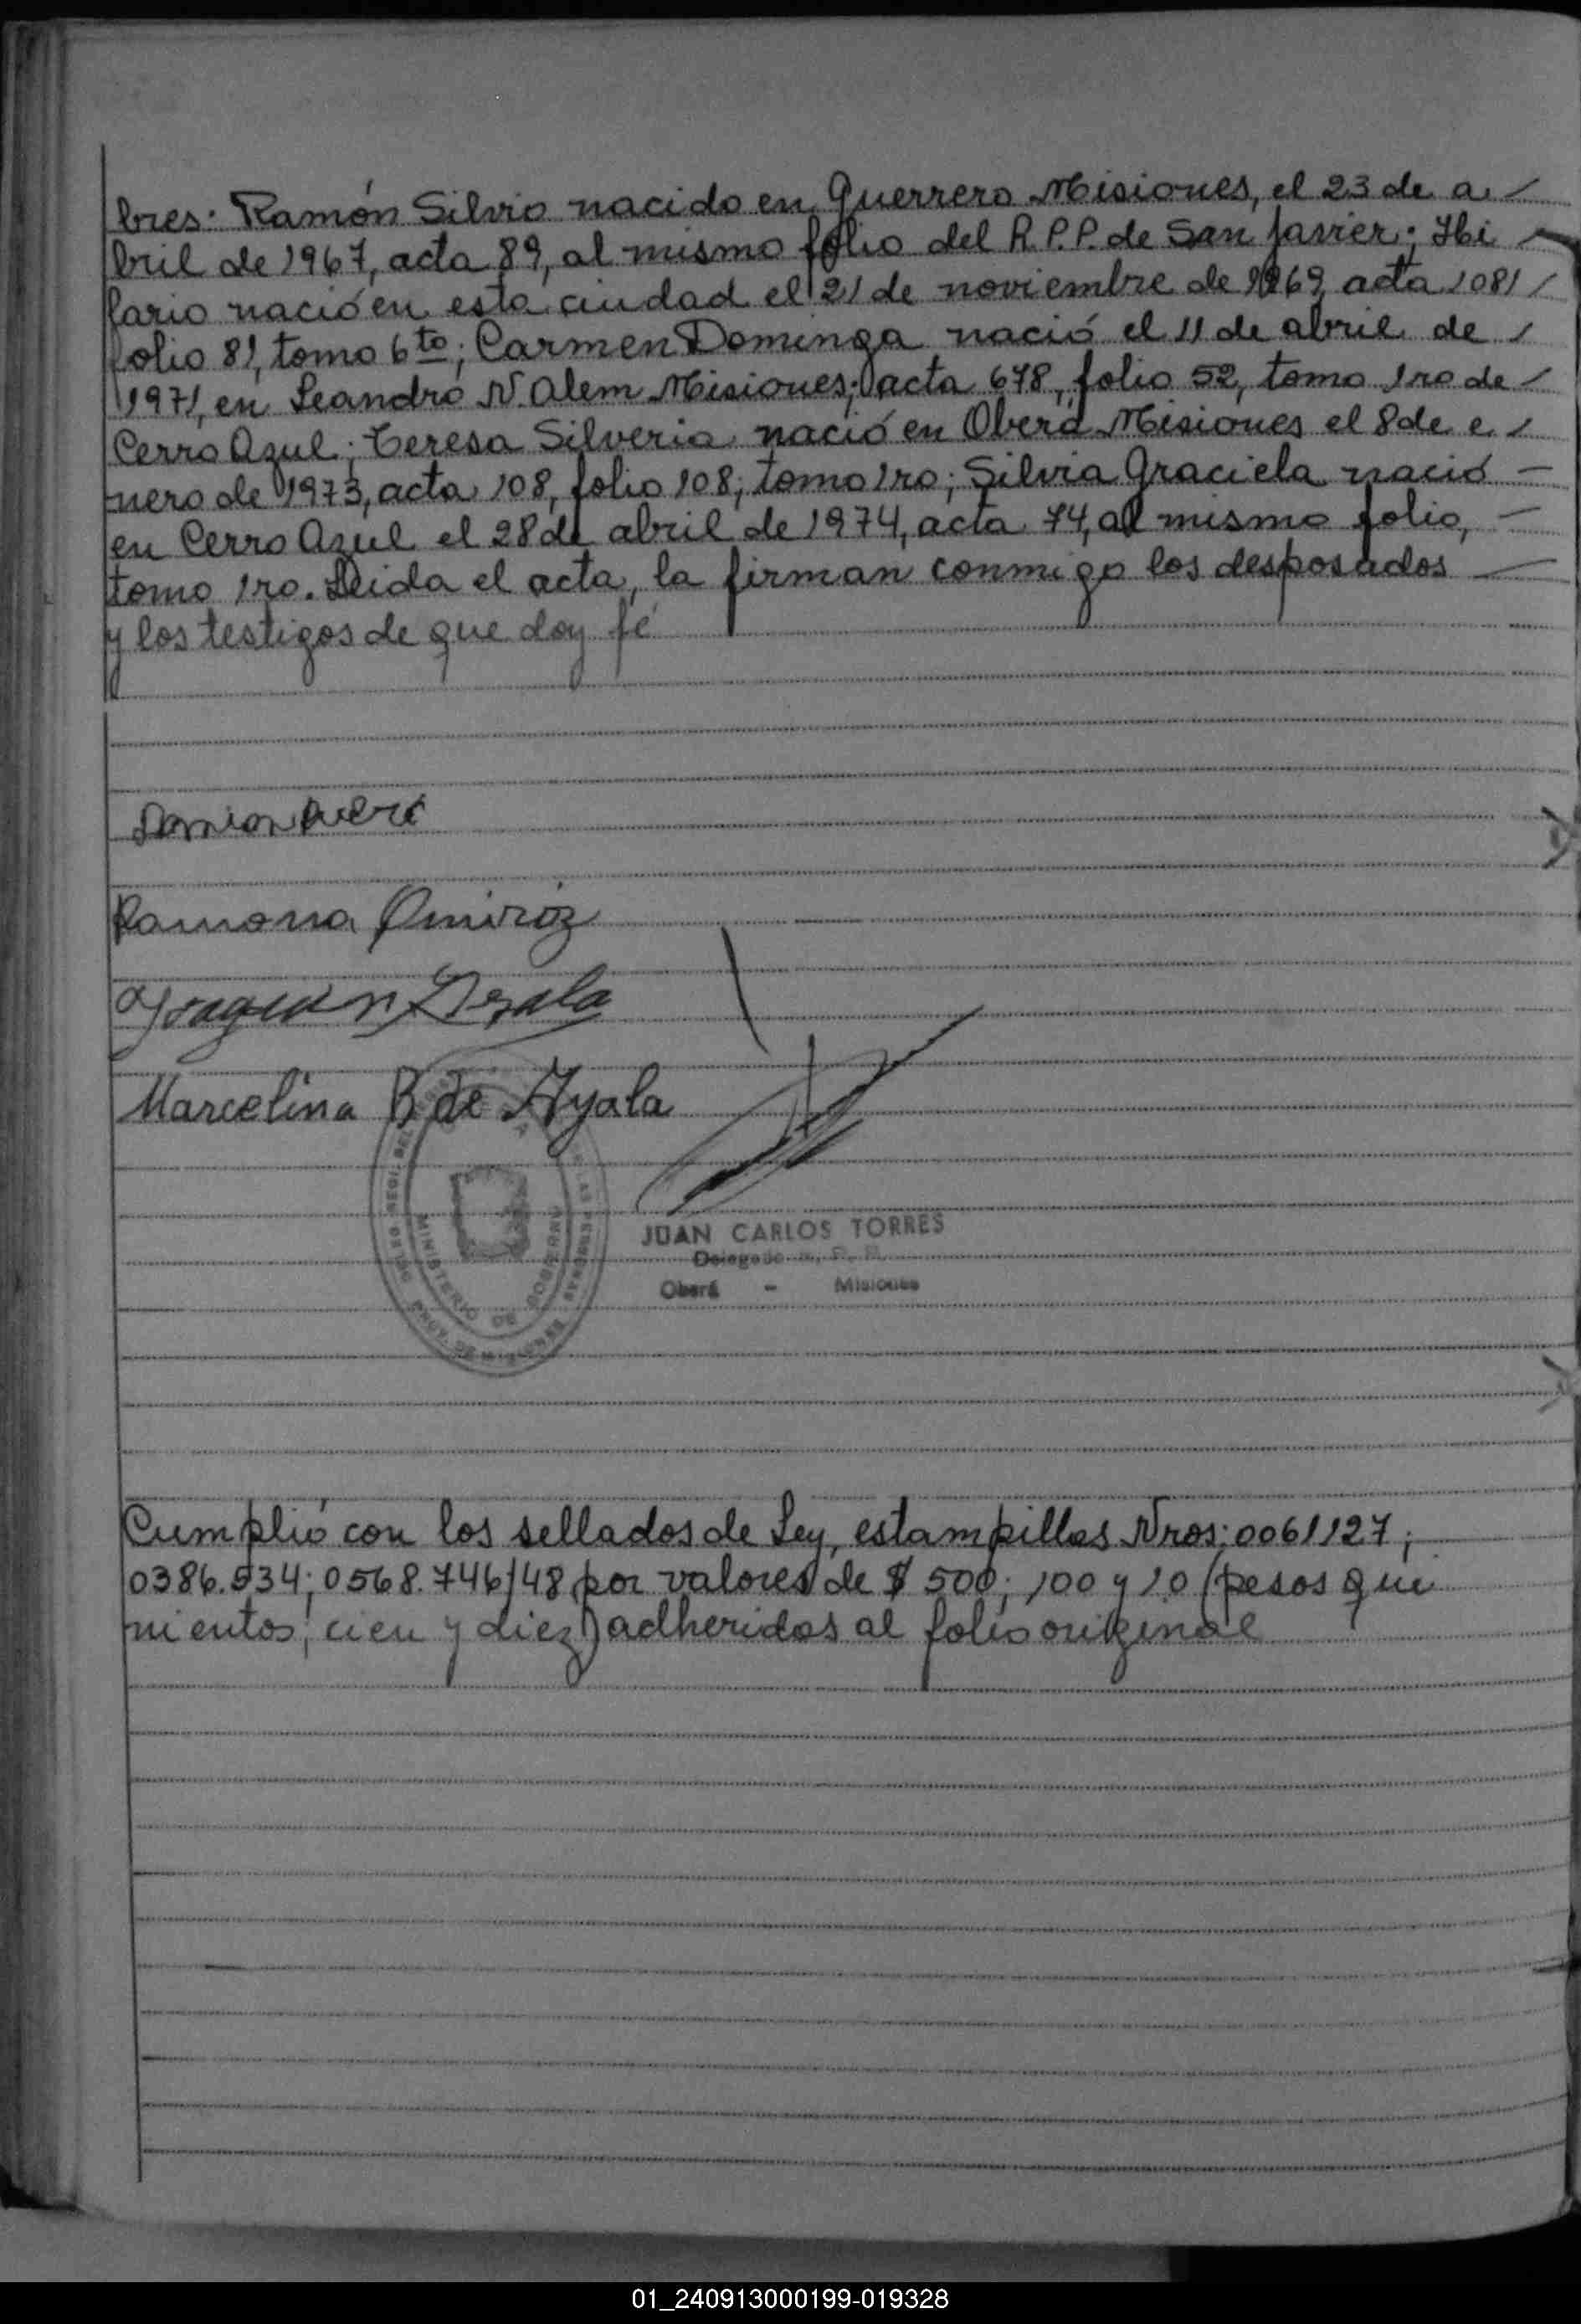 bres: Ramón Silvio nacido en Guerrero Misiones, el 23 de a /
bril de 1967, acta 89, al mismo folio del R.P.P. de San Javier; Hi
lario nació en esta ciudad el 21 de noviembre de 1969, acta 1081 /
folio 81, tomo 6to; Carmen Dominga nació el 11 de abril de /
1971, en Leandro N. Alem Misiones; acta 678, folio 52, tomo 1ro de /
Cerro Azul; Teresa Silveria nació en Oberá Misiones el 8 de e /
nero de 1973, acta 108, folio 108, tomo 1ro; Silvia Graciela nació —
en Cerro Azul el 28 de abril de 1974, acta 74, al mismo folio, —
tomo 1ro. Leida el acta, la firman conmigo los desposados —
y los testigos de que doy fé
Ramona
Ayala
Marcelina B de Ayala
JUAN CARLOS TORRES
Delegado
Oberá - Misiones
MINISTERIO DE GOBIERNO
Cumplió con los sellados de Ley, estampillas Nros: 0061127;
0386.534; 0568.746/48 por valores de $ 500; 100 y 10 (pesos qui
nientos; cien y diez) adheridos al folio original
01_240913000199-019328